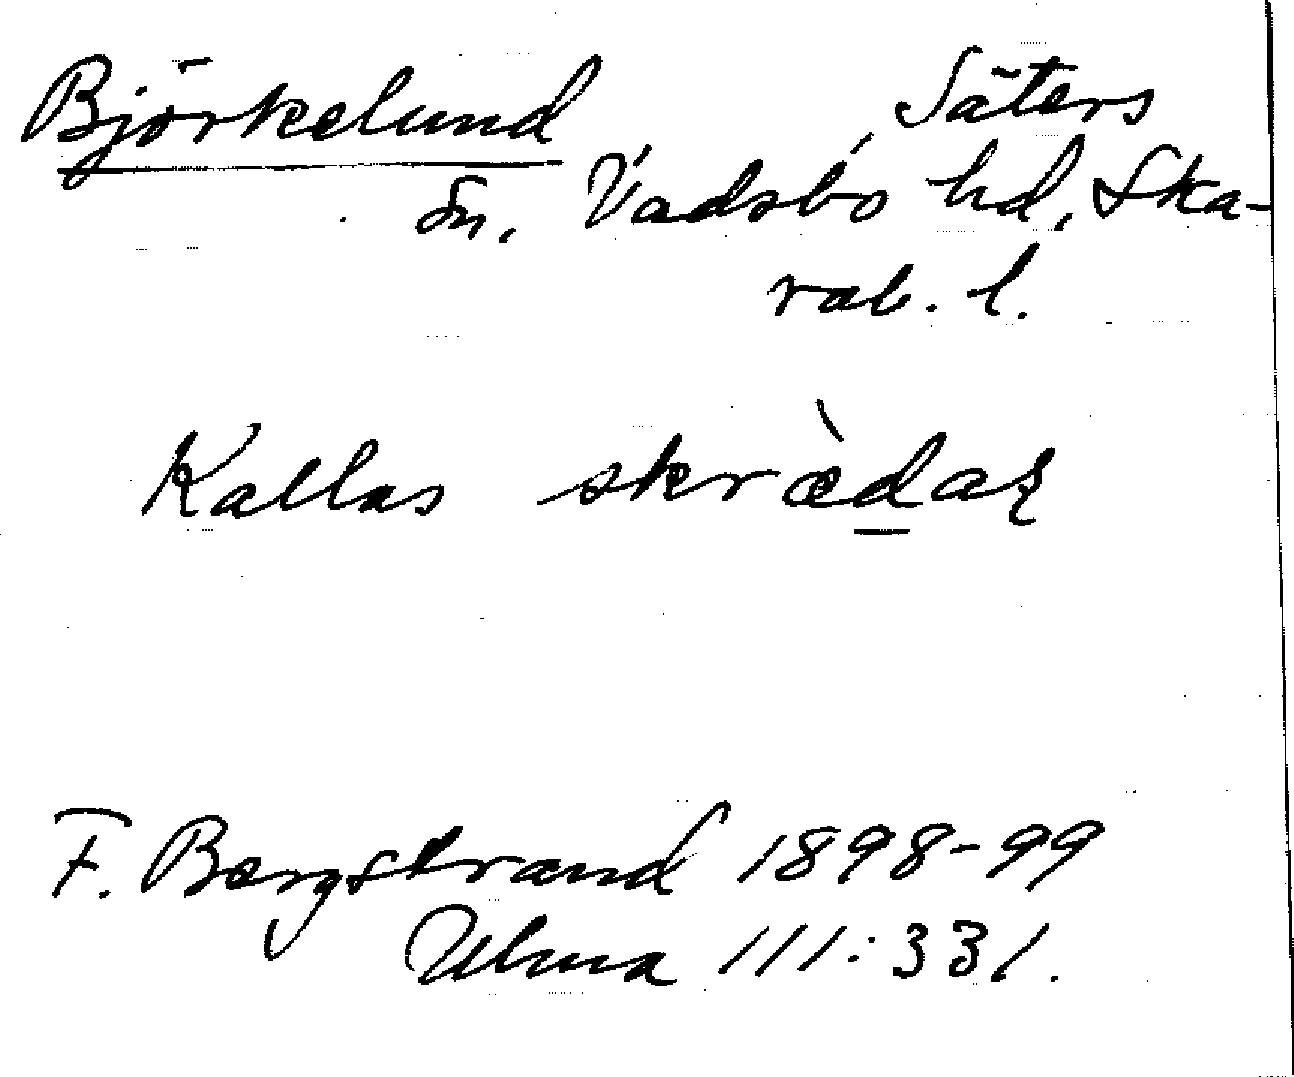 Björkelund Säters
sn, Vadsbo hd, Ska-
rab. l.
Kallas skræ̀d̲aʀ
F. Bergstrand 1898-99
Ulma 111:331.